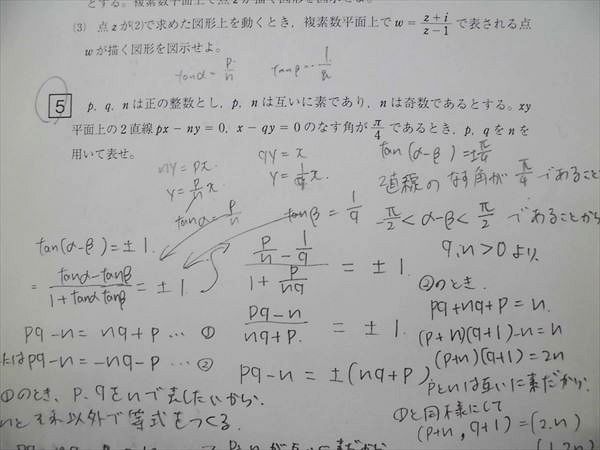 とする。複素数平面上で点zが描く図形を図示せよ。
(3) 点zが(2)で求めた図形上を動くとき，複素数平面上で w = \frac{z+i}{z-1} で表される点
wが描く図形を図示せよ。
tanα = \frac{p}{n}
5
p, q, n は正の整数とし，p, n は互いに素であり，n は奇数であるとする。xy
平面上の2直線 px − ny = 0, x − qy = 0 のなす角が \frac{π}{4} であるとき，p, q を n を
用いて表せ。
ny = px
y = \frac{p}{n}x
tanα = \frac{p}{n}
qy = x
y = \frac{1}{q}x
tanβ = \frac{1}{q}
2直線のなす角が \frac{π}{4} であること
-\frac{π}{2} < α-β < \frac{π}{2} であることから
tan(α-β) = ±1
= \frac{tanα-tanβ}{1+tanαtanβ} = ±1
pq-n = nq+p … ①
たはpq-n = -nq-p … ②
①のとき、p.qをnで表したいから、
nとそれ以外で等式をつくる。
\frac{\frac{p}{n}-\frac{1}{q}}{1+\frac{p}{nq}} = ±1
\frac{pq-n}{nq+p} = ±1
pq-n = ±(nq+p)
q,n>0より
②のとき、
pq+nq+p = n
(p+n)(q+1)-n = n
(p+n)(q+1) = 2n
pとnは互いに素だから、
①と同様にして
(p+n, q+1) = (2, n)